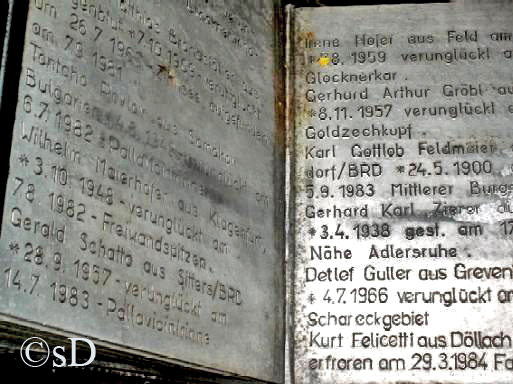 genblut *7.10.1955
am 26.7.196 verunglückt
am 7.9.1981
Bulgarien verunglückt am
6.7.1982 Pallavicinirinne
Wilhelm Maierhofer aus Klagenfurt,
*3.10.1948 - verunglückt am
7.8.1982 - Freiwandspitzen.
Gerald Schatto aus Sitters/BRD
*28.9.1957 - verunglückt am
14.7.1983 - Pallavicinirinne
Irene Hojer aus Feld am
8.1959 verunglückt a
Glocknerkar.
Gerhard Arthur Gröbl au
*8.11.1957 verunglückt
Goldzechkopf.
Karl Gottlob Feldmeier
dorf/BRD *24.5.1900
5.9.1983 Mittlerer Burgs
Gerhard Karl Zierer au
*3.4.1938 gest. am 17
Nähe Adlersruhe.
Detlef Guller aus Greven
*4.7.1966 verunglückt am
Schareckgebiet
Kurt Felicetti aus Döllach
erfroren am 29.3.1984 Fa
©sD